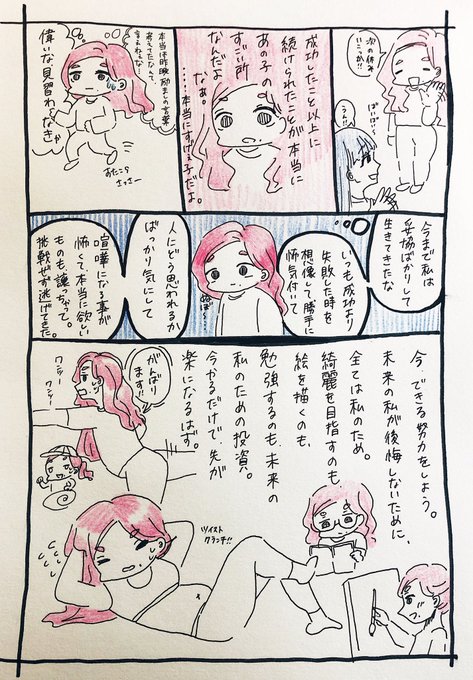 次の休み
いこっか!!
ばいばーい
うん!
成功したこと以上に
続けられたことが本当に
あの子の
すごい所
なんだよ
なぁ。
……本当にすげぇ子だよ。
本当は昨晩励ましの言葉
考えてたなんて
言えねーな
偉いな見習わなきゃ
さっさー
今まで私は
妥協ばかりして
生きてきたな
いつも成功より
失敗した時を
想像して勝手に
怖気付いて
人にどう思われるか
ばっかり気にして
喧嘩になる事が
怖くて本当に欲しい
ものも、譲っちゃって。
挑戦せず逃げてきた。
今、できる努力をしよう。
未来の私が後悔しないために、
全ては私のため。
綺麗を目指すのも
絵を描くのも、
勉強するのも、未来の
私のための投資。
今やるだけで、先が
楽になるはず。
がんばり
ます!!
ワンツー
ワンツー
ツイスト
クランチ!!